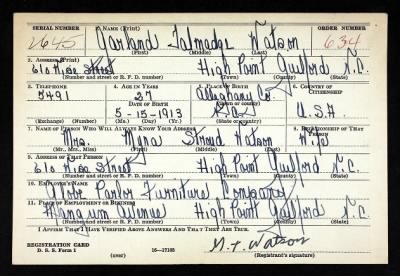 SERIAL NUMBER 1. NAME (Print) ORDER NUMBER
2645 Garland Talmadge Watson 634
(First) (Middle) (Last)
2. ADDRESS (Print)
610 Wise Street High Point Guilford N.C.
(Number and street or R. F. D. number) (Town) (County) (State)
3. TELEPHONE 4. AGE IN YEARS 5. PLACE OF BIRTH 6. COUNTRY OF CITIZENSHIP
5491 27 Alleghany Co.
DATE OF BIRTH (Town or county)
5-15-1913 N.C. U.S.A
(Exchange) (Number) (Mo.) (Day) (Yr.) (State or country)
7. NAME OF PERSON WHO WILL ALWAYS KNOW YOUR ADDRESS 8. RELATIONSHIP OF THAT PERSON
Mrs. Myna Stroud Watson Wife
(Mr., Mrs., Miss) (First) (Middle) (Last)
9. ADDRESS OF THAT PERSON
610 Wise Street High Point Guilford N.C.
(Number and street or R. F. D. number) (Town) (County) (State)
10. EMPLOYER'S NAME
Globe Parlor Furniture Company
11. PLACE OF EMPLOYMENT OR BUSINESS
Mangum Avenue High Point Guilford N.C.
(Number and street or R. F. D. number) (Town) (County) (State)
I AFFIRM THAT I HAVE VERIFIED ABOVE ANSWERS AND THAT THEY ARE TRUE.
REGISTRATION CARD
D. S. S. Form 1 16-17105 G. T. Watson
(over) (Registrant's signature)